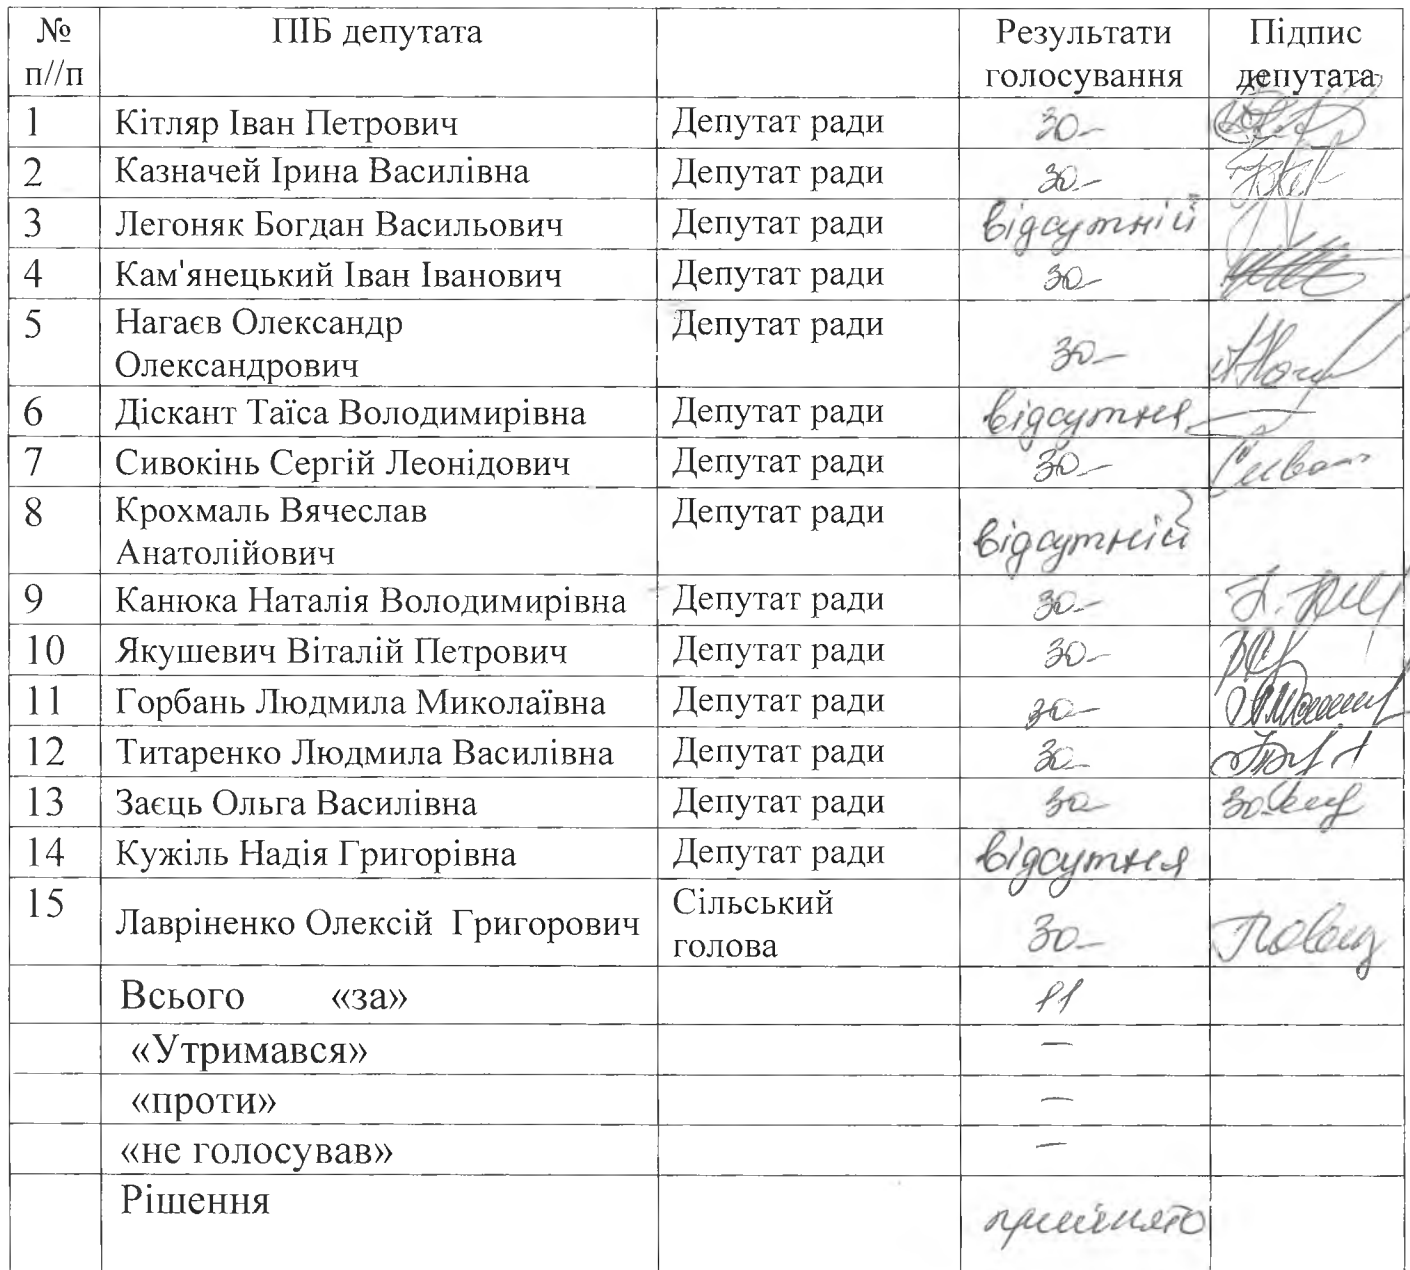 № ПІБ депутата Результати Підпис
п//п голосування депутата
1 Кітляр Іван Петрович Депутат ради за
2 Казначей Ірина Василівна Депутат ради за
3 Легоняк Богдан Васильович Депутат ради відсутній
4 Кам'янецький Іван Іванович Депутат ради за
5 Нагаєв Олександр Депутат ради
Олександрович за
6 Діскант Таїса Володимирівна Депутат ради відсутня
7 Сивокінь Сергій Леонідович Депутат ради за
8 Крохмаль Вячеслав Депутат ради
Анатолійович відсутній
9 Канюка Наталія Володимирівна Депутат ради за
10 Якушевич Віталій Петрович Депутат ради за
11 Горбань Людмила Миколаївна Депутат ради за
12 Титаренко Людмила Василівна Депутат ради за
13 Заєць Ольга Василівна Депутат ради за
14 Кужіль Надія Григорівна Депутат ради відсутня
15 Лавріненко Олексій Григорович Сільський за
голова
Всього «за» 11
«Утримався» —
«проти» —
«не голосував» —
Рішення прийнято